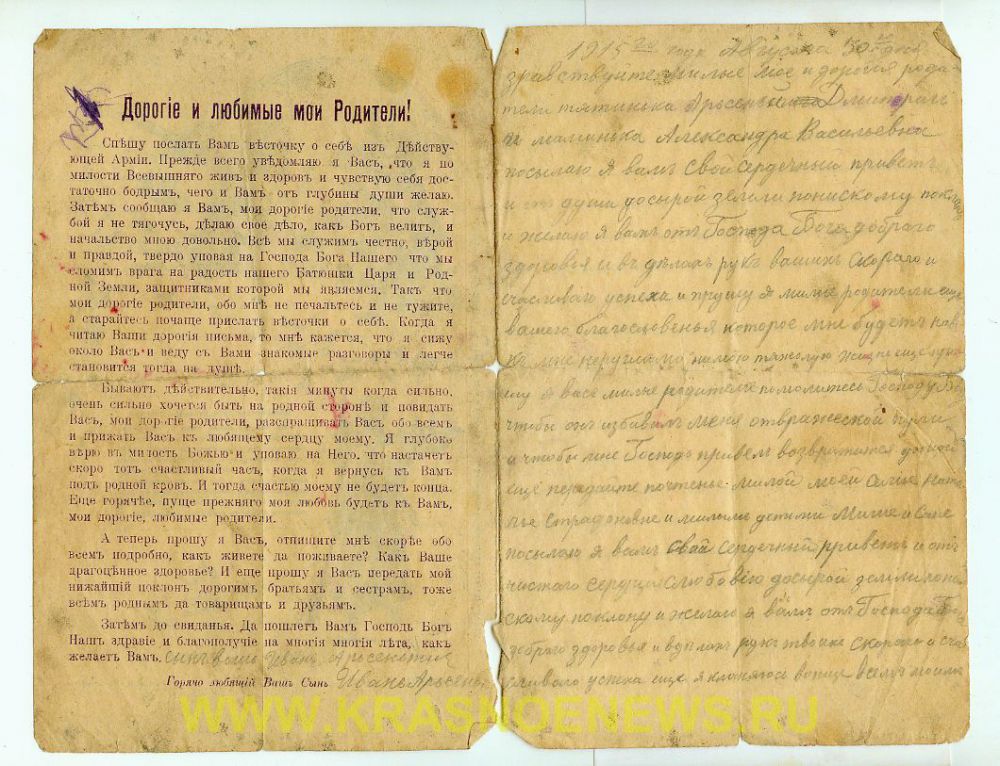 Дорогіе и любимые мои Родители!
Спѣшу послать Вамъ вѣсточку о себѣ изъ Дѣйству-
ющей Арміи. Прежде всего увѣдомляю я Васъ, что я по
милости Всевышняго живъ и здоровъ и чувствую себя дос-
таточно бодрымъ, чего и Вамъ отъ глубины души желаю.
Затѣмъ сообщаю я Вамъ, мои дорогіе родители, что служ-
бой я не тягочусь, дѣлаю свое дѣло, какъ Богъ велитъ, и
начальство мною довольно. Всѣ мы служимъ честно, вѣрой
и правдой, твердо уповая на Господа Бога Нашего что мы
сломимъ врага на радость нашего Батюшки Царя и Род-
ной Земли, защитниками которой мы являемся. Такъ что
мои дорогіе родители, обо мнѣ не печальтесь и не тужите,
а старайтесь почаще прислать вѣсточки о себѣ. Когда я
читаю Ваши дорогія письма, то мнѣ кажется, что я сижу
около Васъ и веду съ Вами знакомые разговоры и легче
становится тогда на душѣ.
Бываютъ дѣйствительно, такія минуты когда сильно,
очень сильно хочется быть на родной сторонѣ и повидать
Васъ, мои дорогіе родители, разспрашивать Васъ обо всемъ
и прижать Васъ къ любящему сердцу моему. Я глубоко
вѣрю въ милость Божью и уповаю на Него, что настачетъ
скоро тотъ счастливый часъ, когда я вернусь къ Вамъ
подъ родной кровъ. И тогда счастью моему не будетъ конца.
Еще горячѣе, пуще прежняго моя любовь будетъ къ Вамъ,
мои дорогіе, любимые родители.
А теперь прошу я Васъ, отпишите мнѣ скорѣе обо
всемъ подробно, какъ живете да поживаете? Какъ Ваше
драгоцѣнное здоровье? И еще прошу я Васъ передать мой
нижайшій поклонъ дорогимъ братьямъ и сестрамъ, тоже
всѣмъ роднымъ да товарищамъ и друзьямъ.
Затѣмъ до свиданья. Да пошлетъ Вамъ Господь Богъ
Нашъ здравіе и благополучіе на многія многія лѣта, какъ
желаетъ Вамъ. сынъ вашъ Иванъ
Горячо любящій Вашъ Сынъ Иванъ Арсень
1915 года Августа 30 дня
здравствуйте милые мое и дорогія роди-
тели тятинька
и маминька Александра Васильевна
посылаю я вамъ свой сердечный приветъ
и отъ души досырой земли понискому поклону
и желаю я вамъ отъ Господа Бога доброго
здоровья и въ дѣлахъ рукъ вашихъ скораго и
счасливаго успеха и прушу я милые родители еще
вашего благословенья которое мне будетъ
жизни еще
я васъ милые родители помолитесь Господу Бо
чтобы онъ избавилъ меня отвражеской пули
и чтобы мне Господь привелъ возвратится домой
ещё передайте почтенье милой моей семье
и милымъ детямъ Мише и
посылаю я вамъ свой сердечный приветъ и отъ
чистаго сердца слюбовію досырой земли пони
скому поклону и желаю я вамъ отъ Господа Бо
доброго здоровья и вделахъ рукъ твоихъ скораго и сча
сливаго успеха еще я кланяюсь вопще всемъ моимъ
WWW.KRASNOENEWS.RU